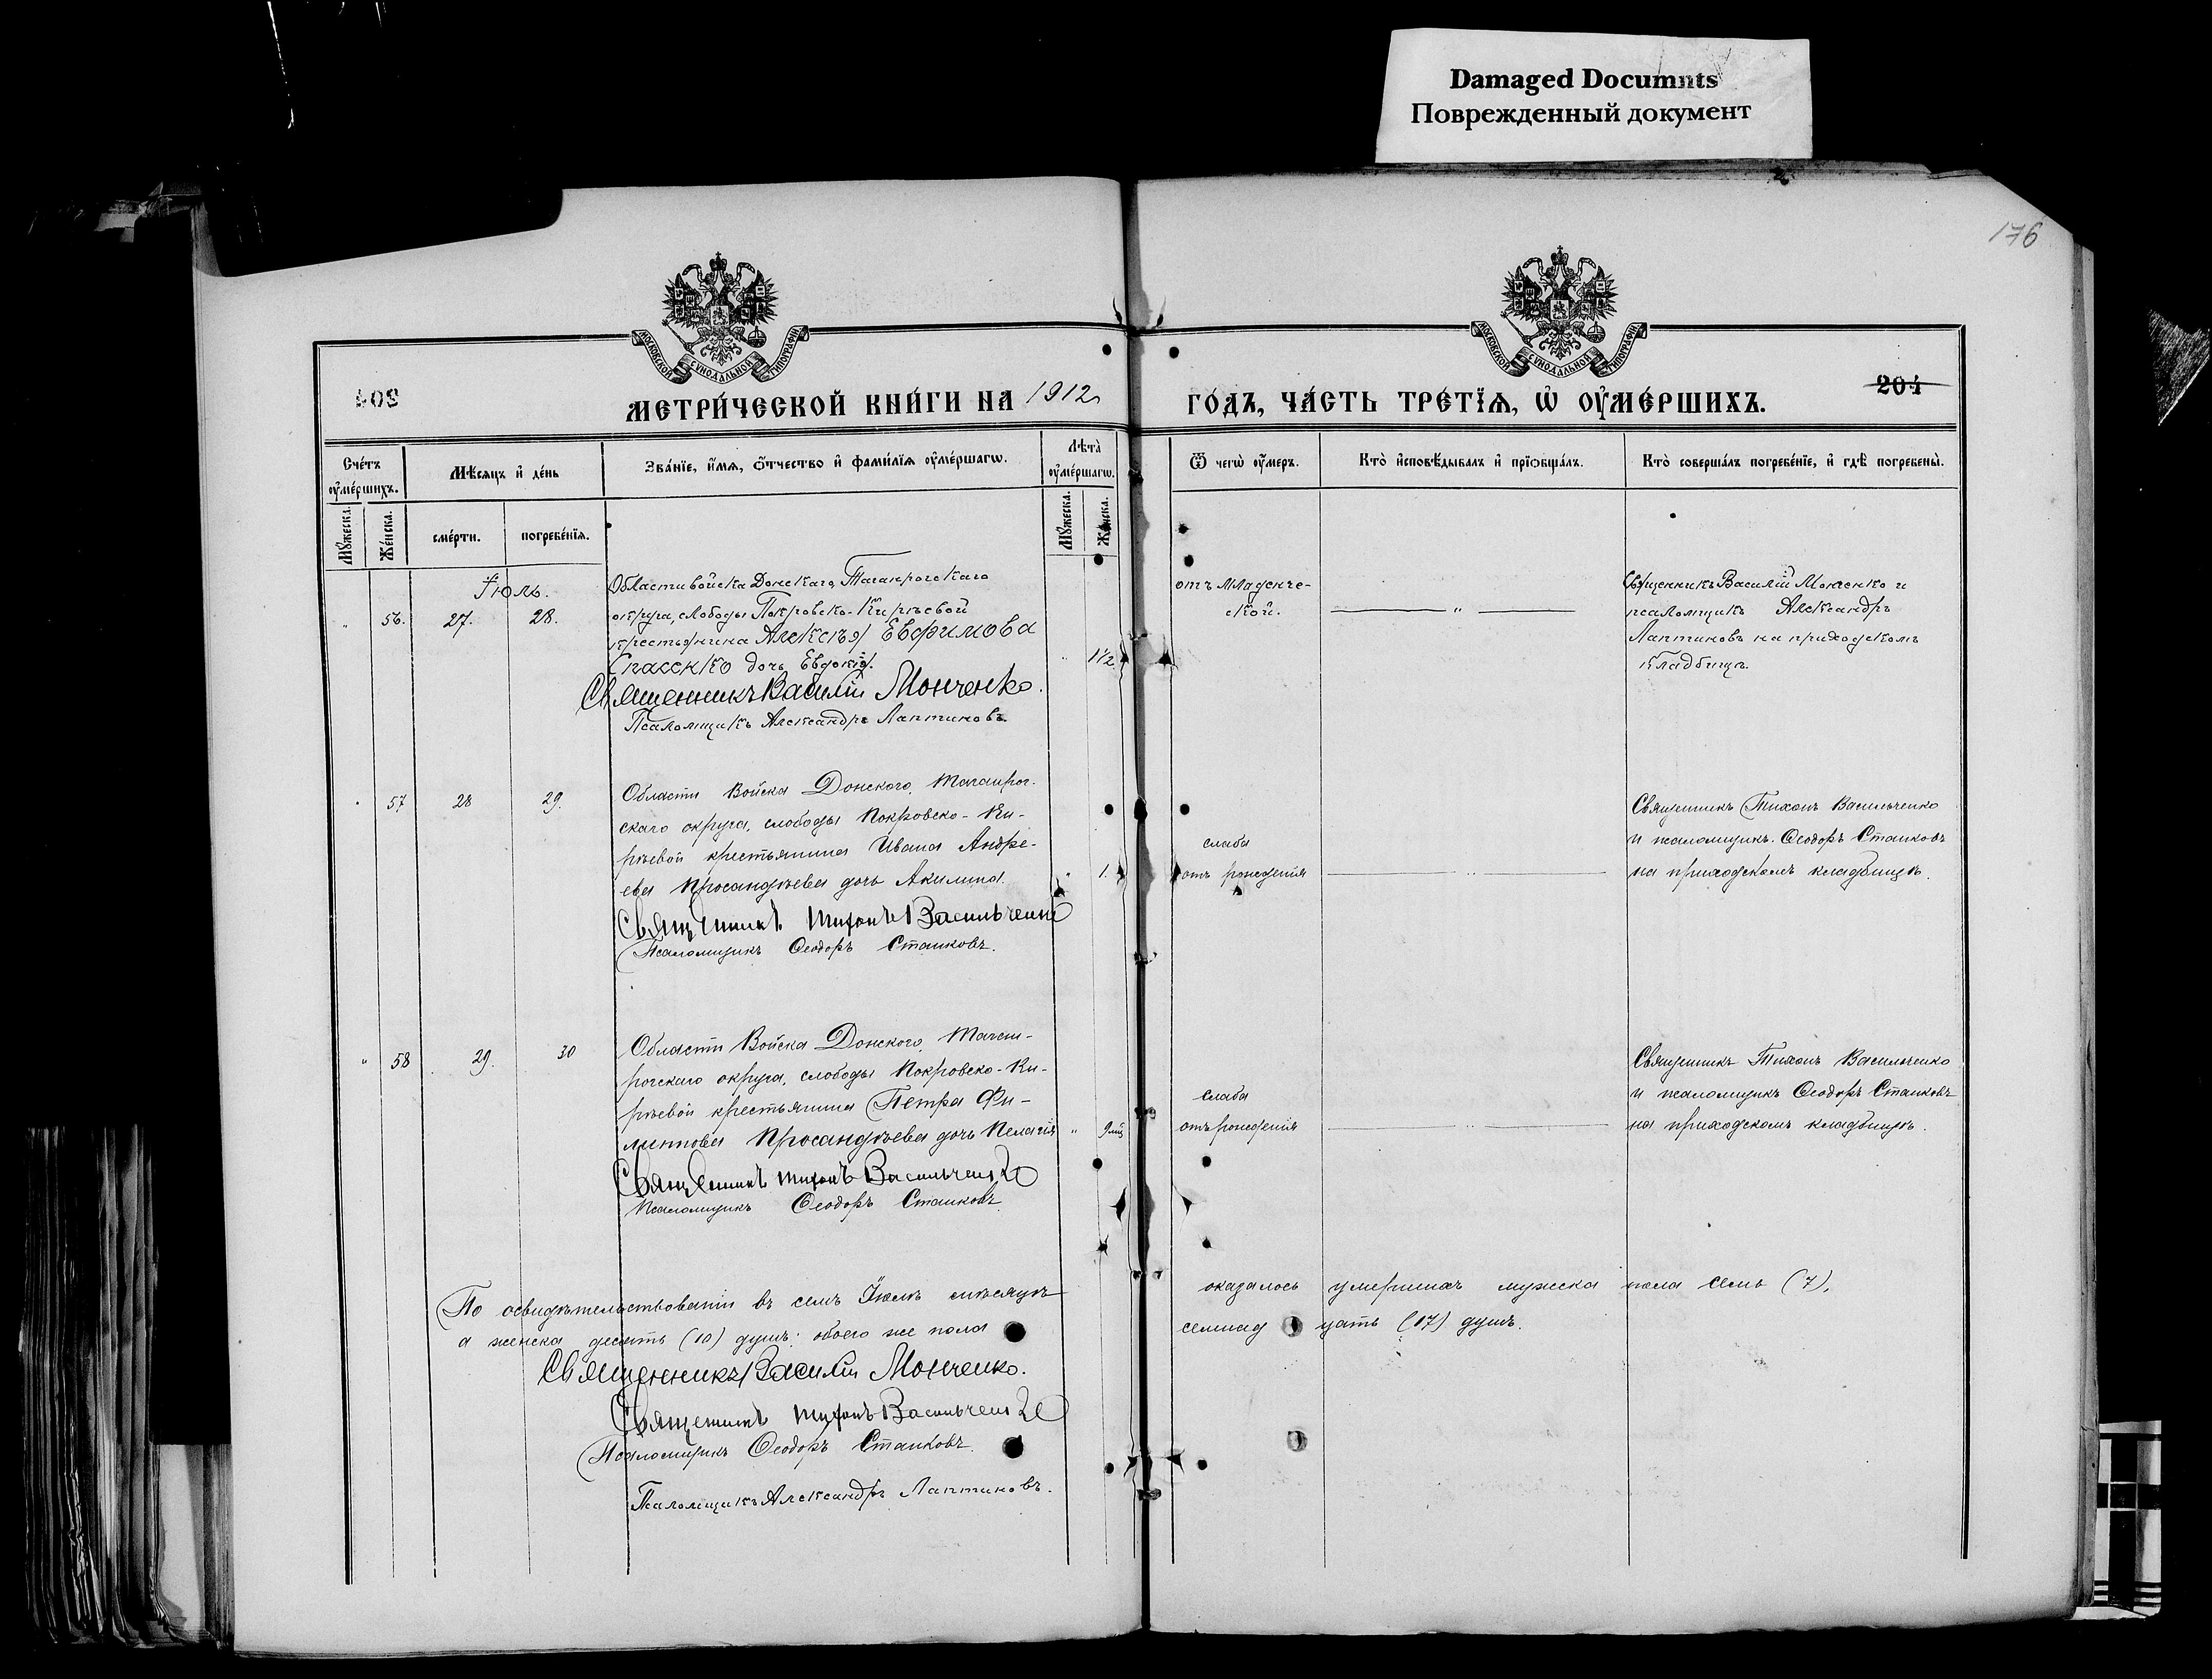 Damaged Documnts
Поврежденный документ
176
МОСКОВСКОЙ СѴНОДАЛЬНОЙ ТИПОГРАФІИ
МОСКОВСКОЙ СѴНОДАЛЬНОЙ ТИПОГРАФІИ
204
МЕТРИ́ЧЕСКОЙ КНИ́ГИ НА 1912
ГО́ДЪ, ЧА́СТЬ ТРЕ́ТІѦ, Ѡ҆ ОУ҆МЕ́РШИХЪ.
Сче́тъ оу҆ме́ршихъ.
Мѣ́сяцъ и҆ де́нь
Зва́нїе, и҆́мѧ, ѻ҆́тчество и҆ фами́лїѧ оу҆ме́ршагѡ.
Лѣта̀ оу҆ме́ршагѡ.
Ѿ чегѡ̀ оу҆́меръ.
Кто̀ и҆сповѣ́дывалъ и҆ прїѡбща́лъ.
Кто̀ соверша́лъ погребе́нїе, и҆ гдѣ̀ погребены̀.
Мꙋ́жеска.
Же́нска.
сме́рти.
погребе́нїѧ.
Мꙋ́жеска.
Же́нска.
Іюль.
„ 56. 27. 28.
Области войска Донскаго, Таганрогскаго
округа, слободы Покровско-Кирѣевой
крестьянина Алексѣя Евфимова
Спасскко дочь Евдокія.
„ 1 1/2
Священникъ Василій Монченко.
Псаломщикъ Александръ Лаптиновъ
отъ младенче-
ской.
„
Священникъ Василій Монченко и
псаломщикъ Александръ
Лаптиновъ на приходскомъ
кладбищѣ.
57 28 29.
Области Войска Донского, Таганрог-
скаго округа, слободы Покровско-Ки-
рѣевой крестьянина Ивана Андре-
ева Просандѣева дочь Акилина.
1.
Священникъ Тихонъ Васильченко
Псаломщикъ Ѳеодоръ Станковъ.
слаба
отъ рожденія
Священникъ Тихонъ Васильченко
и псаломщикъ Ѳеодоръ Станковъ
на приходскомъ кладбищѣ.
„ 58 29. 30
Области Войска Донского, Таган-
рогскаго округа, слободы Покровско-Ки-
рѣевой крестьянина Петра Фи-
липпова Просандѣева дочь Пелагія
„ 9 мц
Священникъ Тихонъ Васильченко
Псаломщикъ Ѳеодоръ Станковъ.
слаба
отъ рожденія
Священникъ Тихонъ Васильченко
и псаломщикъ Ѳеодоръ Станковъ
на приходскомъ кладбищѣ.
По освидѣтельствованіи въ семъ Іюлѣ мѣсяцѣ оказалось умершихъ мужска пола семь (7),
а женска десять (10) душъ: обоего же пола семнадцать (17) душъ.
Священникъ Василій Монченко.
Священникъ Тихонъ Васильченко
Псаломщикъ Ѳеодоръ Станковъ.
Псаломщикъ Александръ Лаптиновъ.